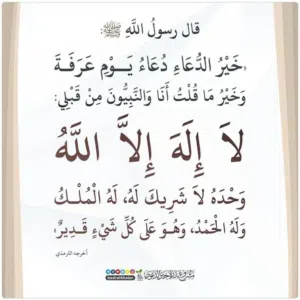 قال رسولُ اللَّهِ ﷺ:
«خَيْرُ الدُّعَاءِ دُعَاءُ يَـوْمِ عَرَفَةَ
وَخَيْرُ مَا قُلْتُ أَنَا وَالنَّبِيُّونَ مِنْ قَبْلِي:
لاَ إِلَهَ إِلاَّ اللَّهُ
وَحْدَهُ لاَ شَرِيكَ لَهُ، لَهُ الْمُلْكُ
وَلَهُ الْحَمْدُ، وَهُوَ عَلَى كُلِّ شَيْءٍ قَدِيرٌ»
أخرجه الترمذي